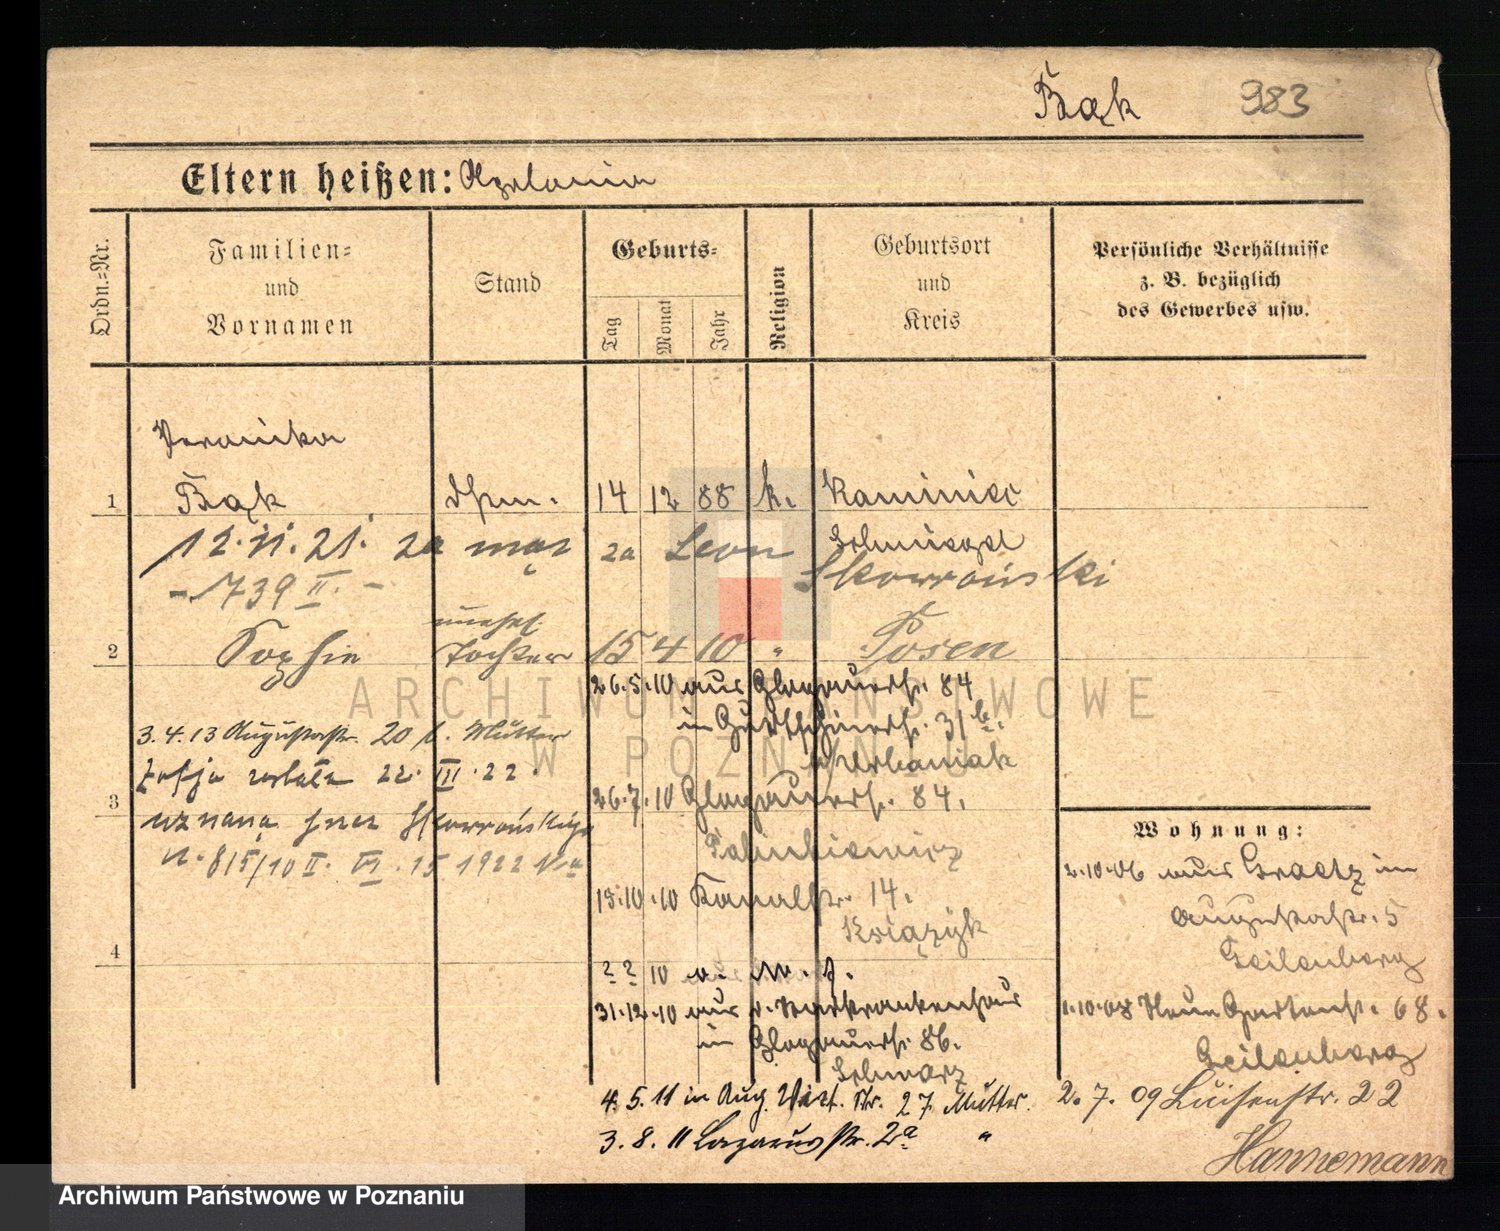 Bąk 983
Eltern heißen: Apolonia
Ordn.-Nr.
Familien-
und
Vornamen
Stand
Geburts-
Tag
Monat
Jahr
Religion
Geburtsort
und
Kreis
Persönliche Verhältnisse
z. B. bezüglich
des Gewerbes usw.
Veronika
1 Bąk 14 12 88 k. Kaminiec
Schmiegel
12.11.21. za mąż za Leon Skowroński
- 1739 II. -
unehel.
2 Sophie Tochter 15 4 10 " Posen
26.5.10 aus Glogauerstr. 84
in Gurtschinerstr. 31 b.
b/ Urbaniak
3.4.13 Augustastr. 20 b. Mutter
Zofja została 22. III. 22.
3
26.7.10 Glogauerstr. 84.
uznana przez Skowrońskiego
N. 815/10 II. VI. 15 1922
15.10.10 Kanalstr. 14.
Książyk
4
? ? 10 v.
31.12.10 aus d. Stadtkrankenhaus
in Glogauerstr. 86.
Schwarz
4.5.11 in Aug. Vict. Str. 27 Mutter.
3.8.11 Lazarusstr. 2a "
Wohnung:
2.10.06 aus Graetz in
Augustastr. 5
Geilenberg
1.10.08 Neue Gartenstr. 68.
Geilenberg
2.7.09 Luisenstr. 22
Hannemann
ARCHIWUM PAŃSTWOWE
W POZNANIU
Archiwum Państwowe w Poznaniu